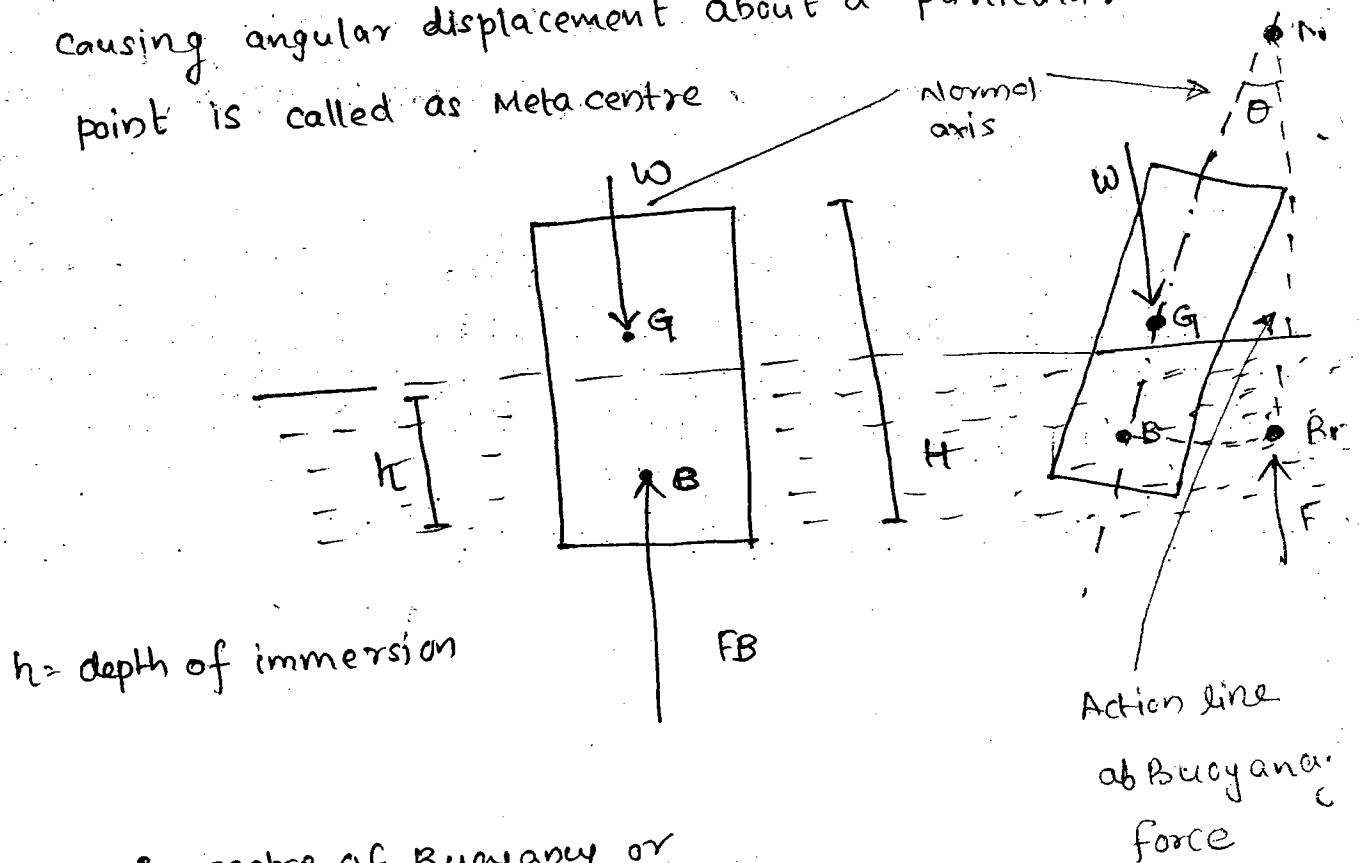 causing angular displacement about a
point is called as Metacentre
Normal
axis
θ
W
W
G
G
B
B
h
H
F
FB
h= depth of immersion
Action line
force
centre of Buoyancy or